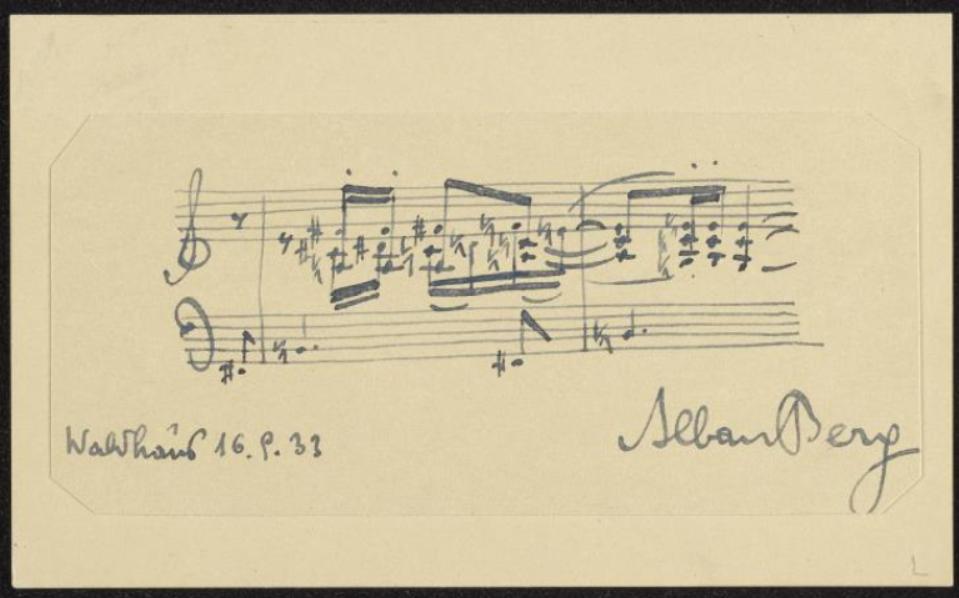 Waldhaus 16. 9. 33
Alban Berg
L